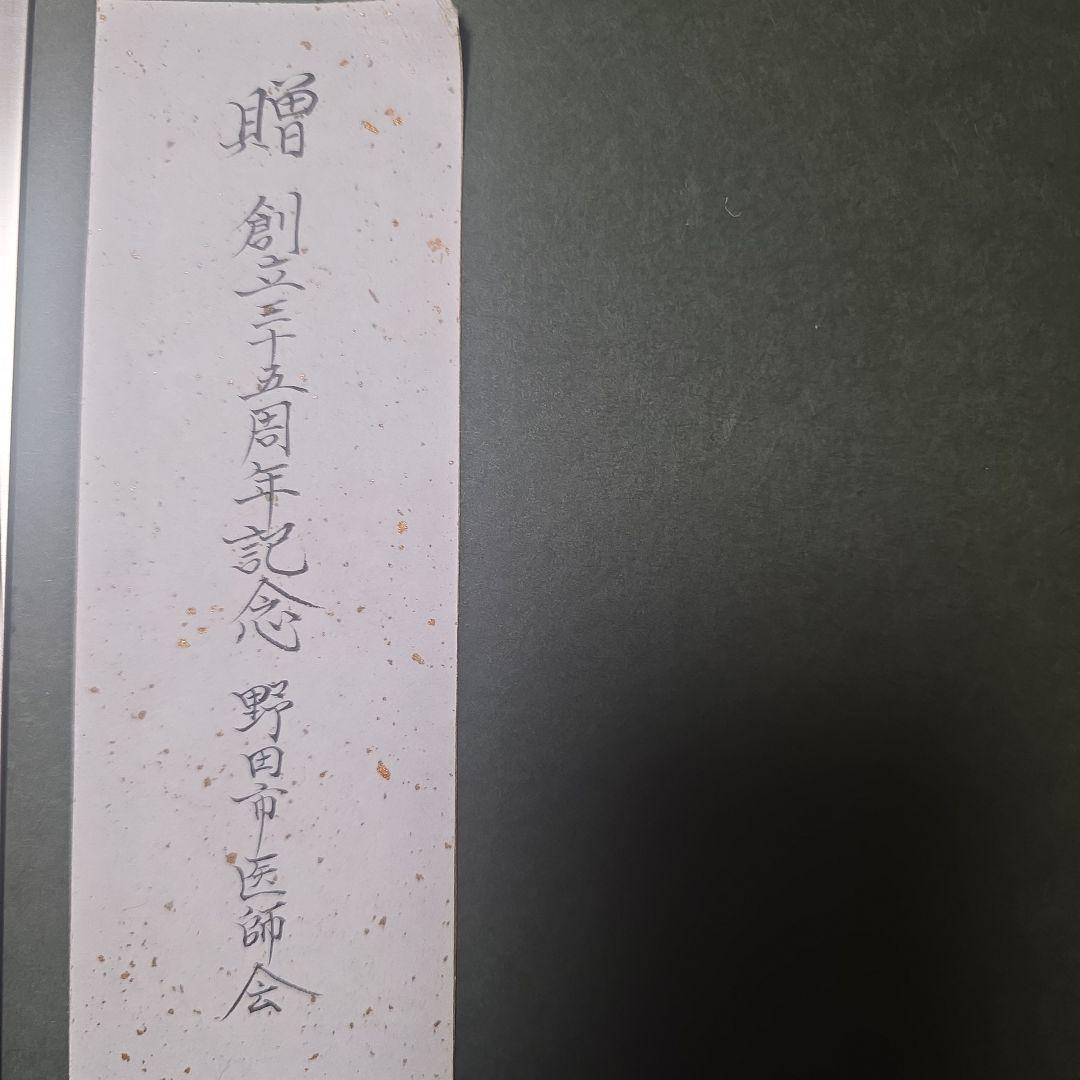 贈 創立三十五周年記念 野田市医師会